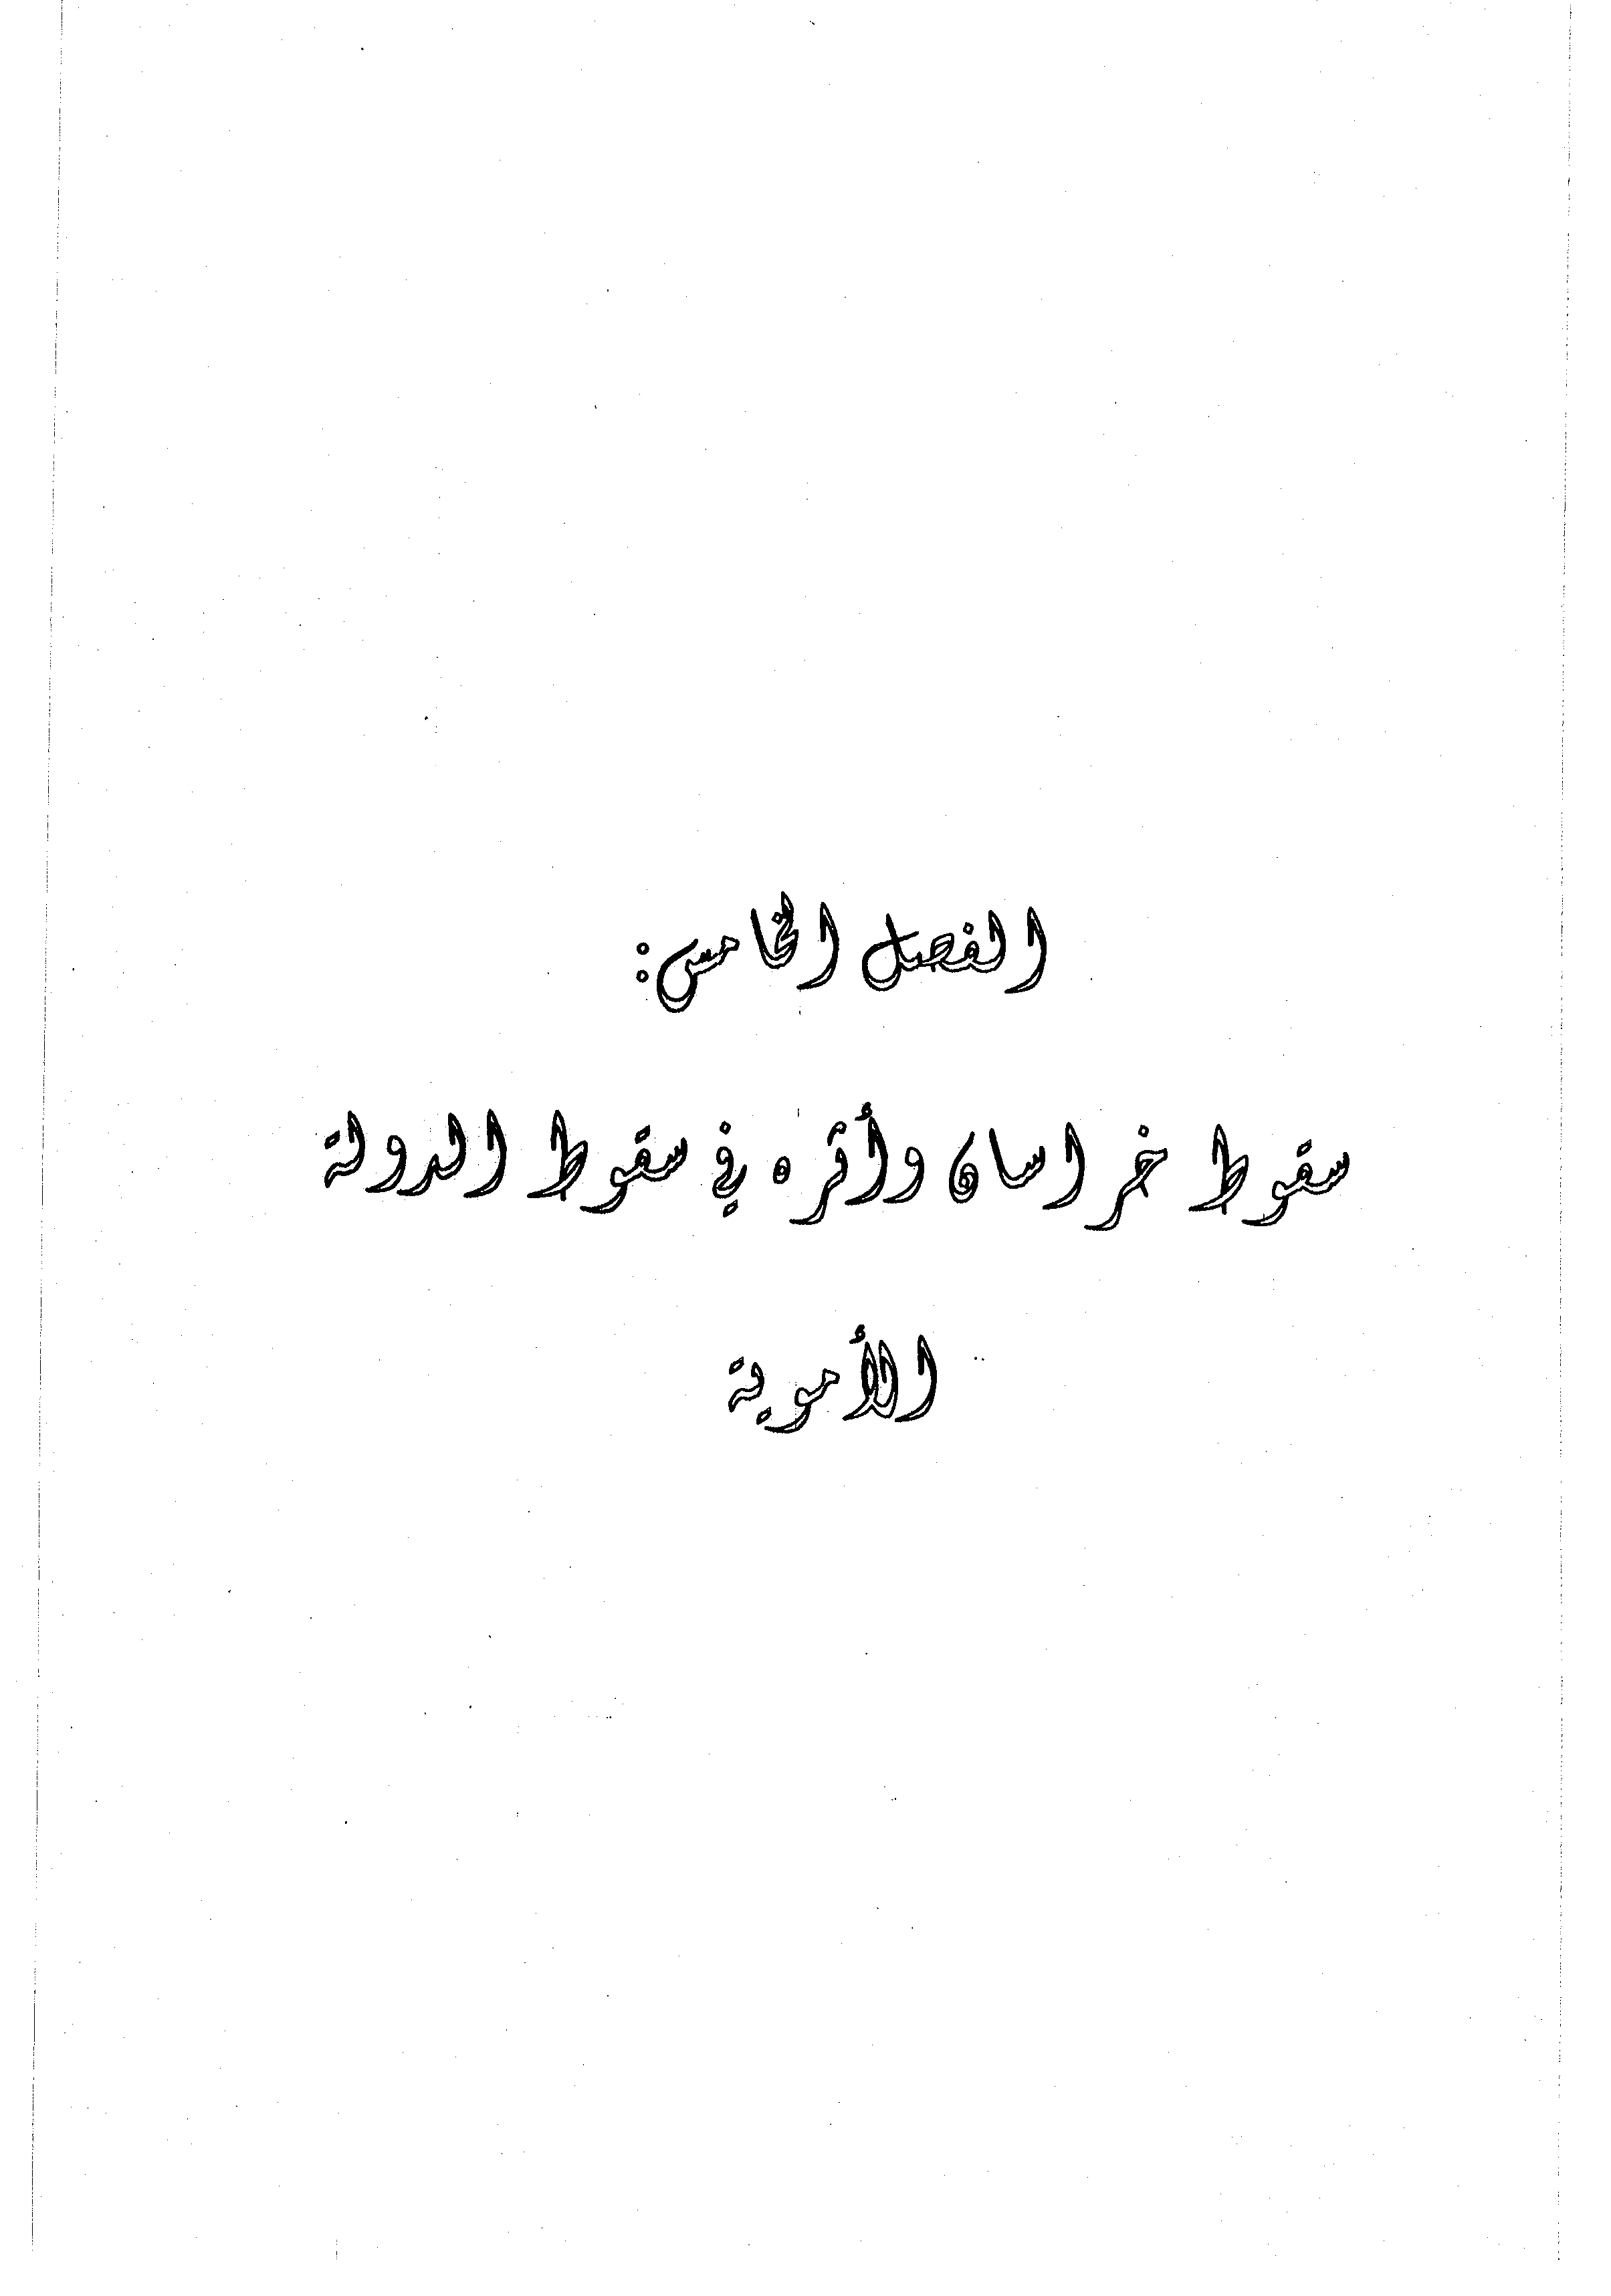 الفصل الخامس:
سقوط خراسان وأثره في سقوط الدولة
الأموية